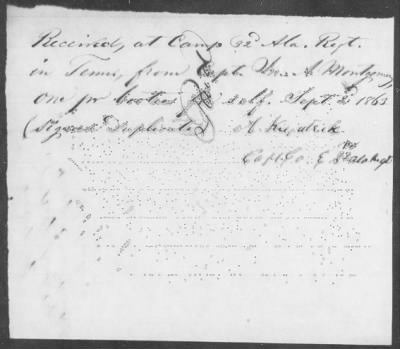 Received, at Camp 32d Ala. Regt.
in Tenn, from Capt. Wm. A Montgomery
one pr booties for self. Sept. 2d 1863
(Signed Duplicates) A. Kilpatrick
Capt. Co. E 32d Ala Regt